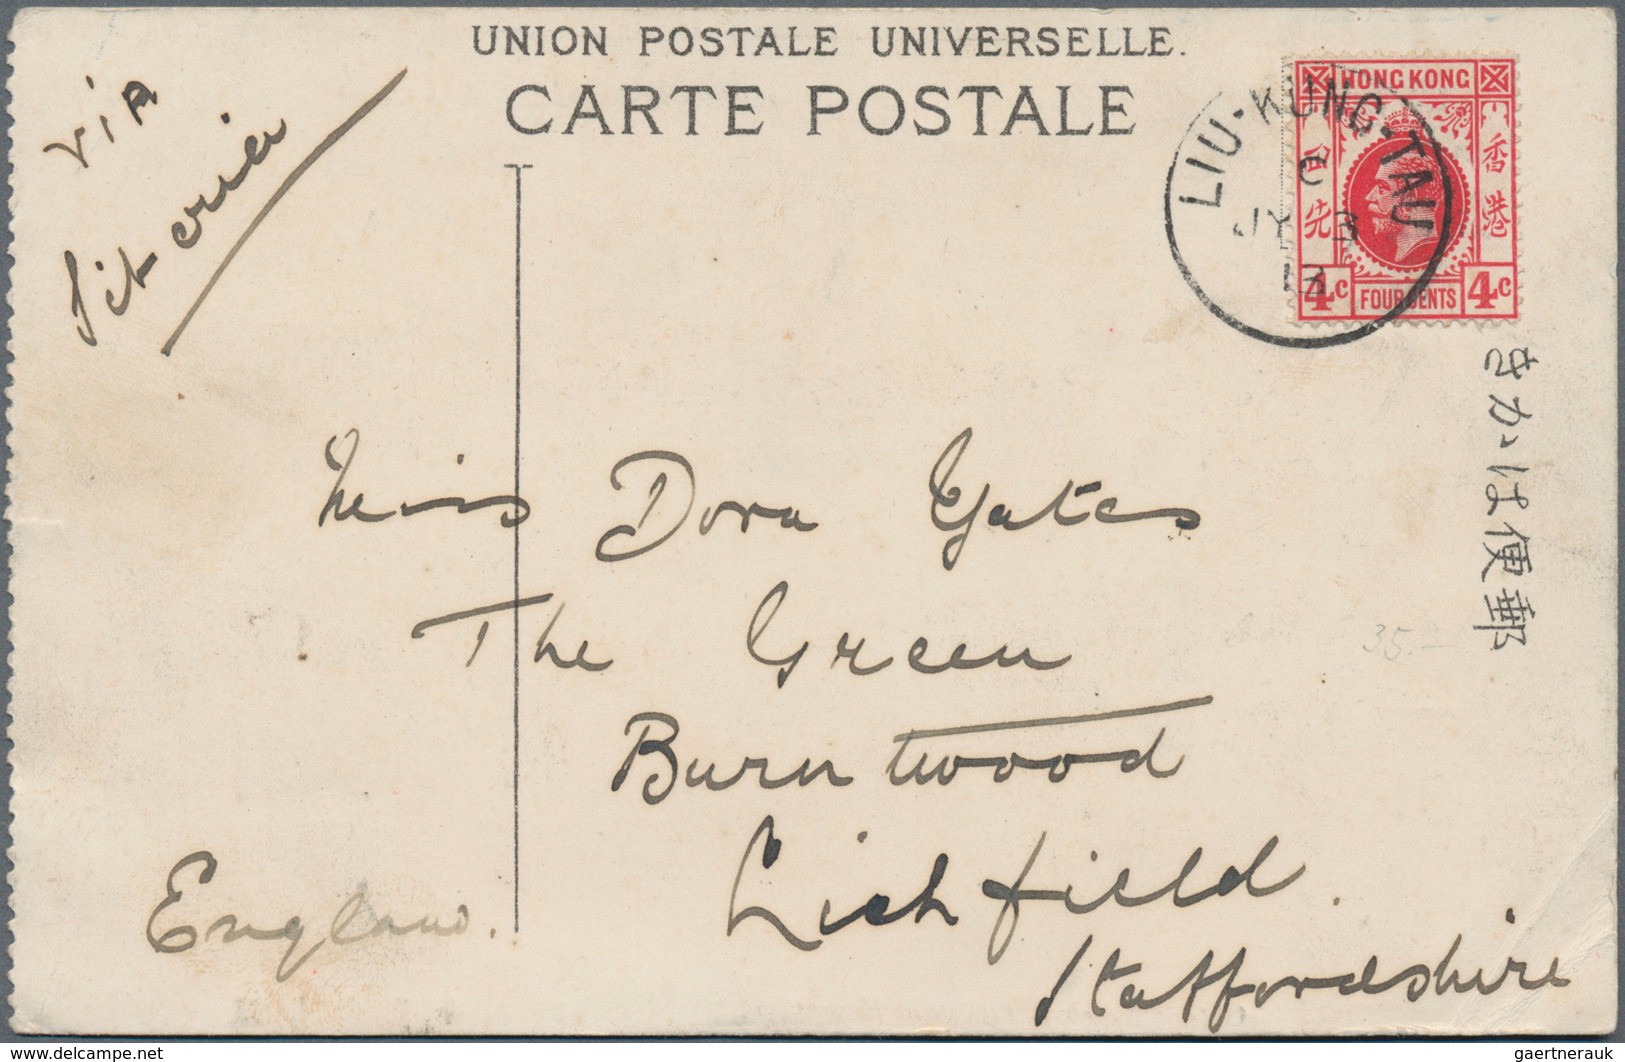 UNION POSTALE UNIVERSELLE.
CARTE POSTALE
VIA
Siberia
HONG KONG
香港
四先
4c
FOUR CENTS
4c
LIU-KUNG-TAU
C
JY 3
13
きかは便郵
Miss Dora Yates
The Green
Burntwood
Lichfield.
Staffordshire
England.
35.-
www.delcampe.net
gaertnerauk